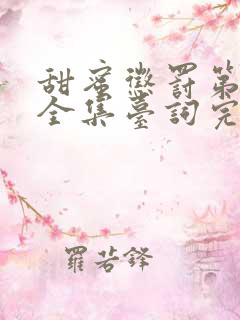 甜蜜懲罰第
全集臺詞完
羅若鋒